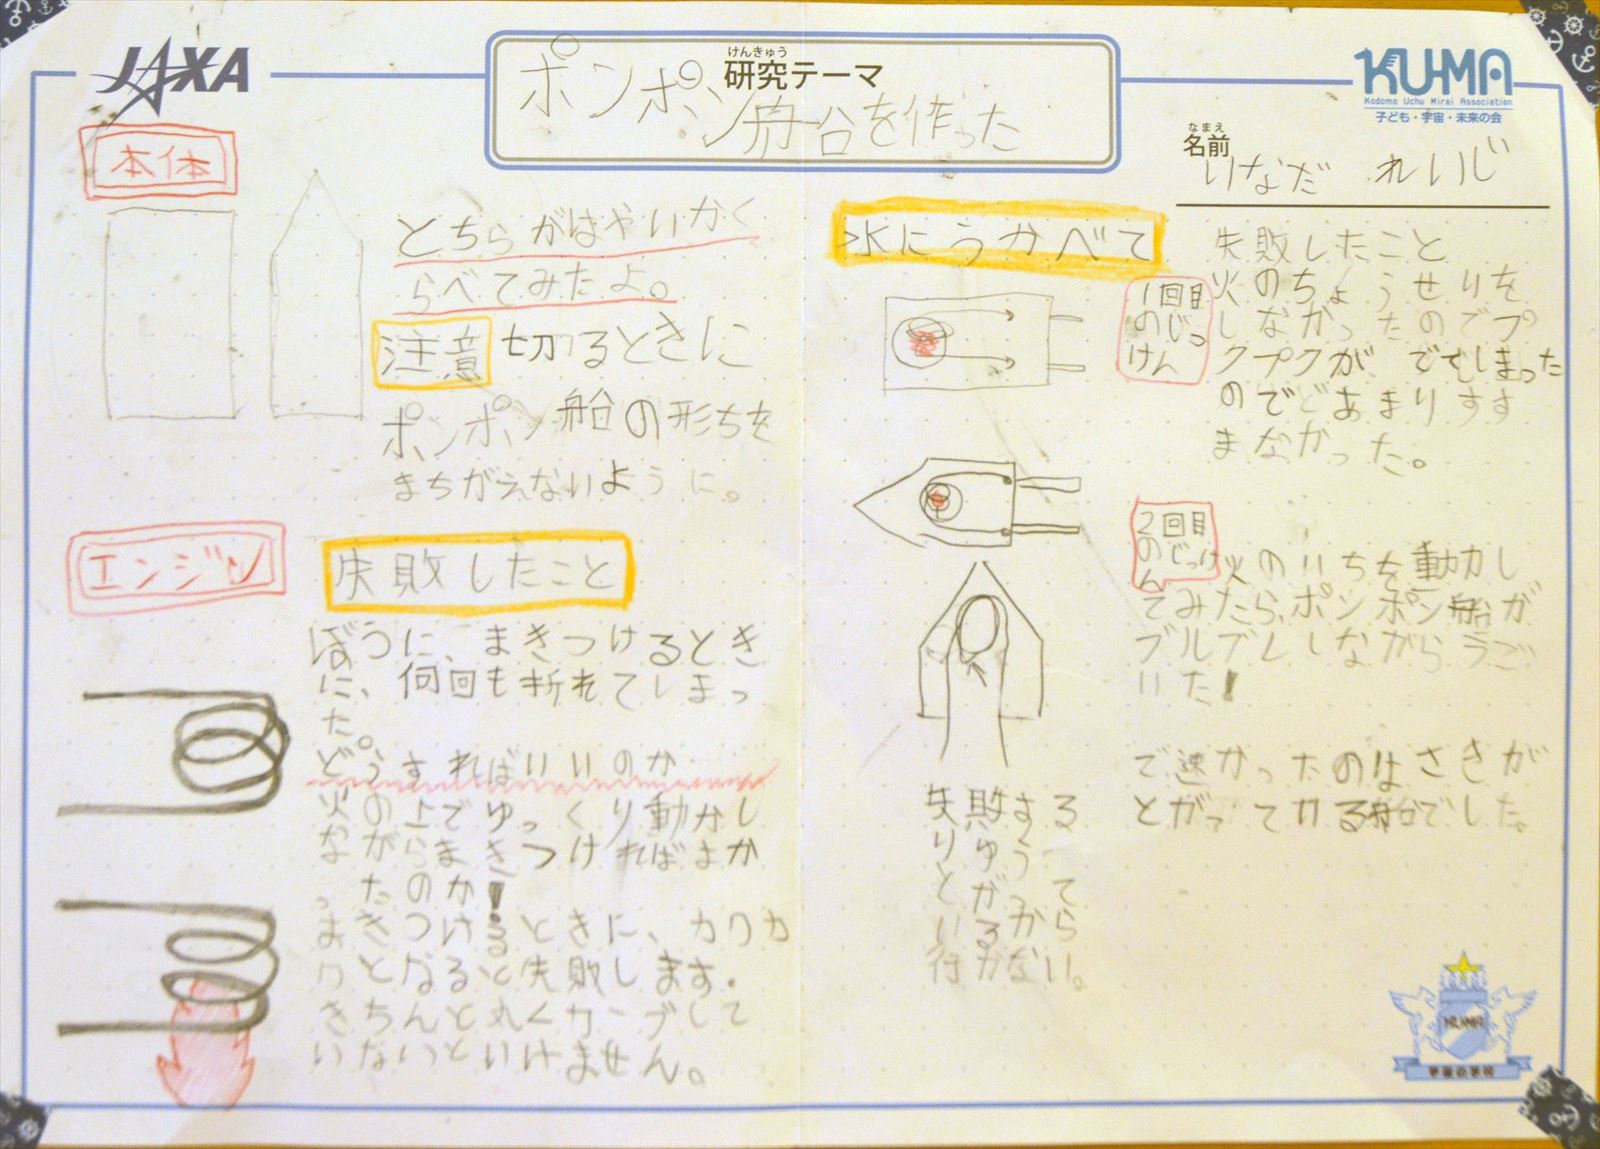 JAXA
けんきゅう
研究テーマ
ポンポン船を作った
KU-MA
Kodomo Uchu Mirai Association
子ども・宇宙・未来の会
なまえ
名前
りなだ れいじ
本体
とちらがはやいかく
らべてみたよ。
注意 切るときに
ポンポン船の形ちを
まちがえないように。
エンジン
失敗したこと
ぼうに、まきつけるとき
に、何回も折れてしまっ
た。
どうすればいいのか
火の上でゆっくり動かし
ながらまきつければよか
ったのか!
まきつけるときに、カクカ
クとなると失敗します.
きちんと丸くカーブして
いないといけません。
水にうかべて
1回目
のじっ
けん
失敗したこと
火のちょうせりを
しなかったのでプ
クプクが でてしまった
のでどあまりすす
まなかった。
2回目
のじっけ
ん
火のいちを動かし
てみたら、ポンポン船が
ブルブルしながらうご
いた!
で速かったのはさきが
とがってカる船でした。
失敗する
りゆう
とがって
いるから
行かない。
KU-MA
宇宙の学校